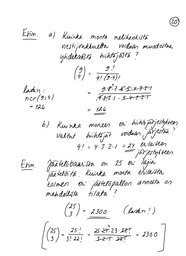 20
Esim. a) Kuinka monta nelihenkistä
viestijoukkuetta voidaan muodostaa
yhdeksästä hiihtäjästä?
(9 4) = 9! / 4!(9-4)!
Laskin:
ncr(9,4)
= 126
= 126
b) Kuinka moneen eri hiihtojärjestykseen
valitut hiihtäjät voidaan järjestää?
4! = 4·3·2·1 = 24 erilaiseen
järjestykseen
Esim. Jäätelöbaarissa on 25 eri lajia
jäätelöitä. Kuinka monta erilaista
kolmen eri jäätelöpallon annosta on
mahdollista tilata?
(25 3) = 2300 (laskin!)
[ (25 3) = 25! / 3!·22! = = 2300 ]